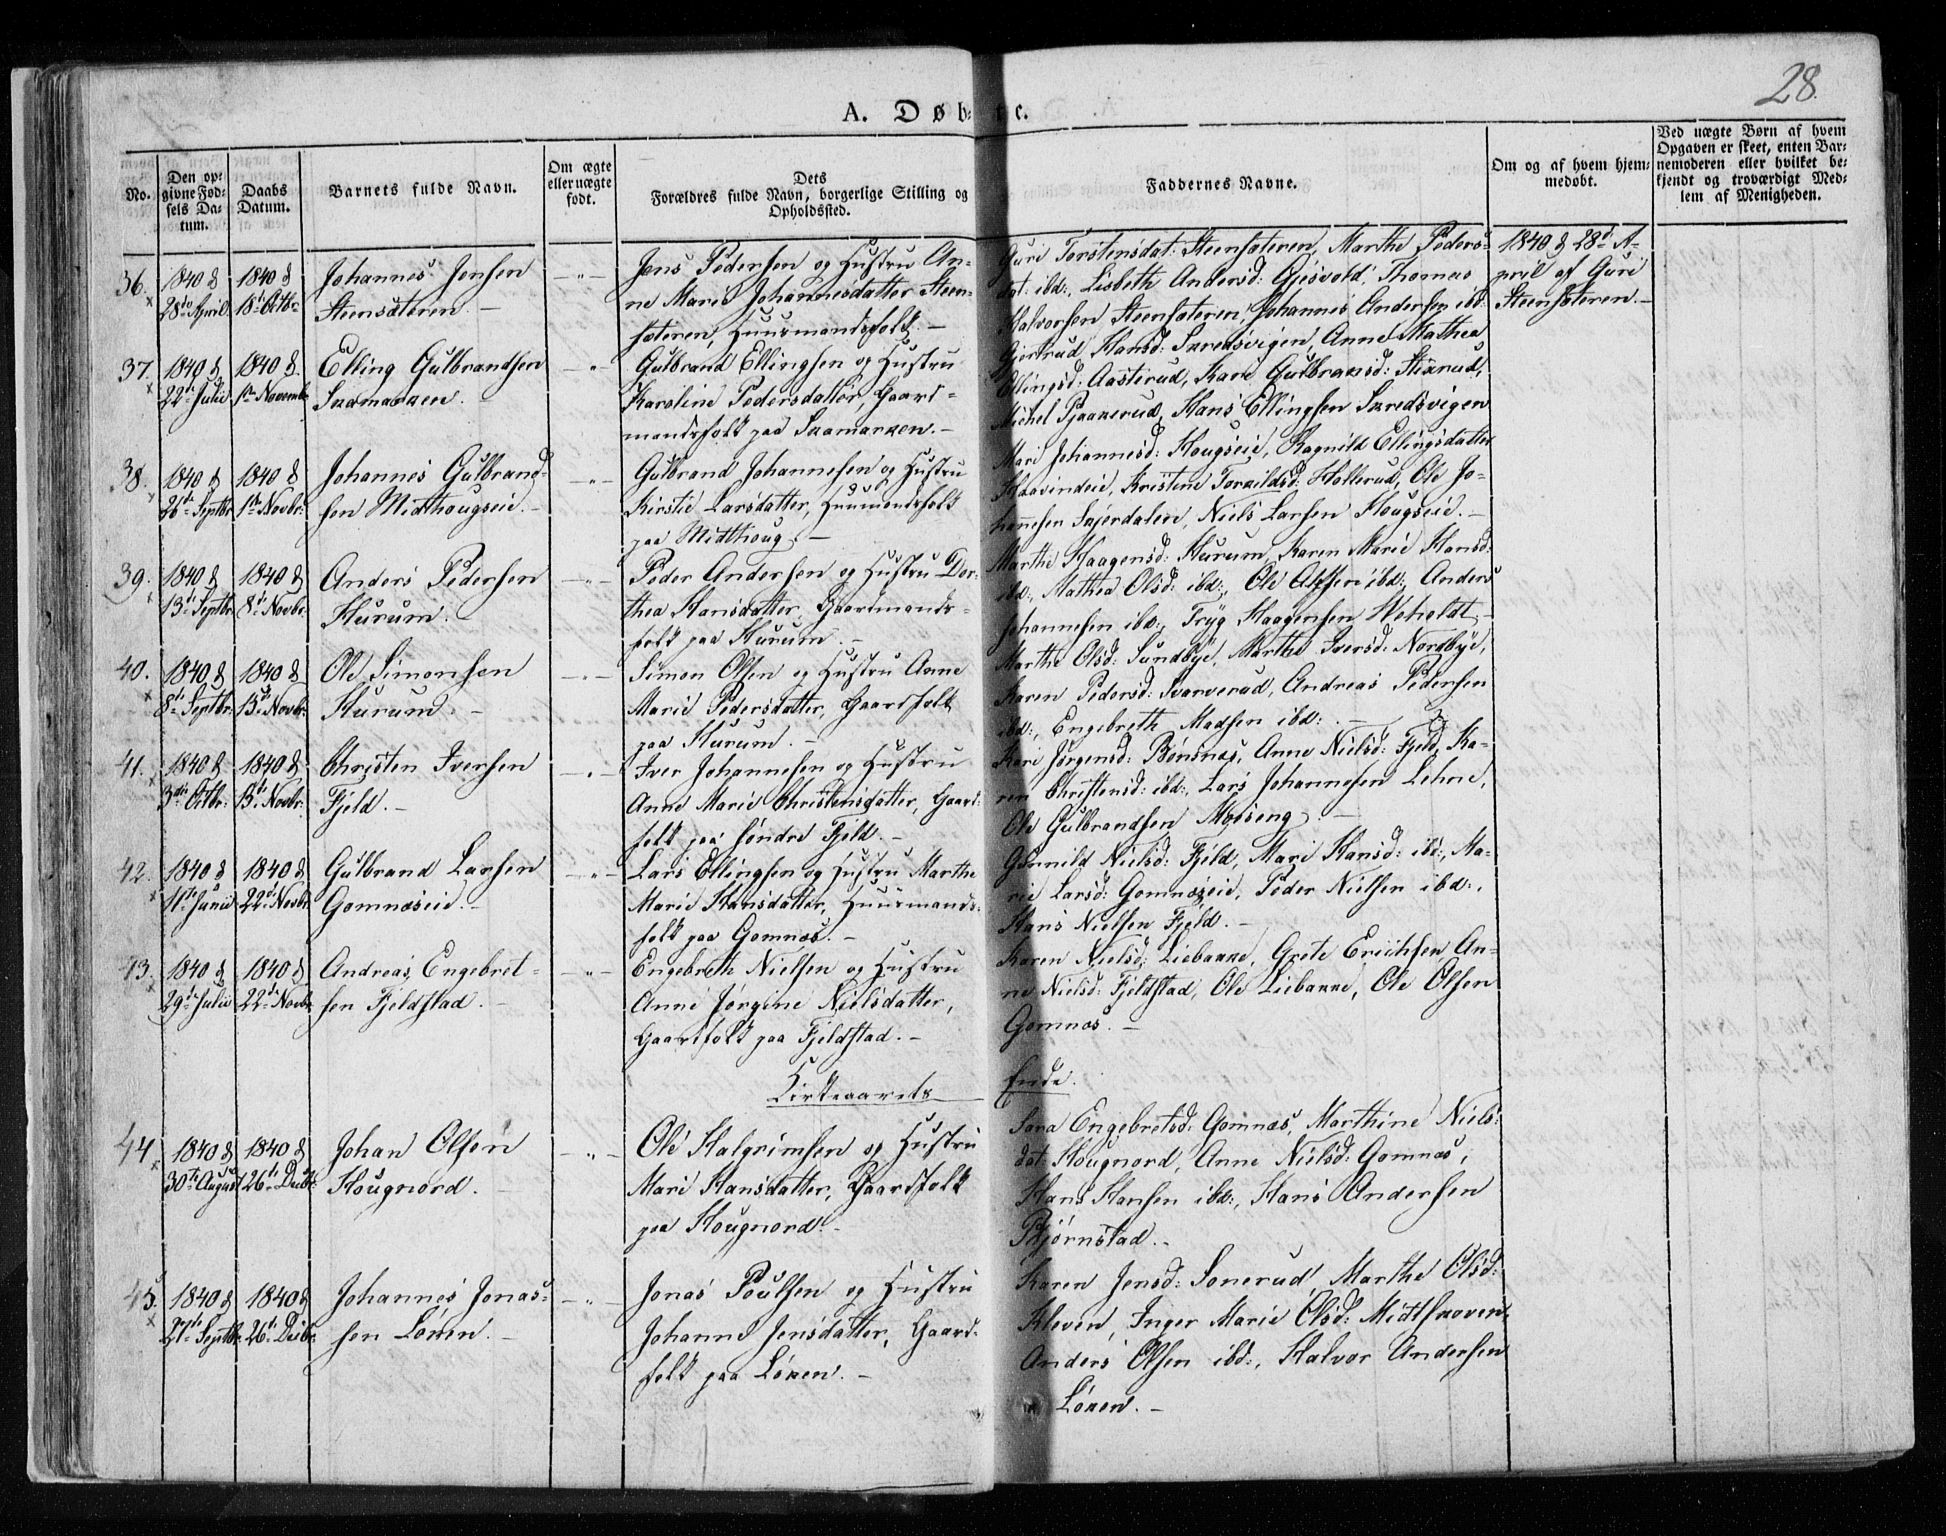 28.
A. Døbte.
No.
Den opgivne Fødsels Datum.
Daabs Datum.
Barnets fulde Navn.
Om ægte eller uægte født.
Dets Forældres fulde Navn, borgerlige Stilling og Opholdssted.
Faddernes Navne.
Om og af hvem hjemmedøbt.
Ved uægte Børn af hvem Opgaven er skeet, enten Barnemoderen eller hvilket bekjendt og troværdigt Medlem af Menigheden.
36.
1840 d
28de April
1840 d
18de Octbr
Johannes Jensen
Steensæteren. —
— " —
Jens Pedersen og Hustru An-
ne Marie Johannesdatter Steen-
sæteren, Huusmandsfolk. —
Guri Torstensdat: Steensæteren, Marthe Peders-
dat: ibd:, Lisbeth Andersd: Gjesvold, Thomas
Halvorsen Steensæteren, Johannes Andersen ibd:
1840 d 28de A-
pril af Guri
Steensæteren. —
37.
1840 d
22de Julii
1840 d.
1ste Novembr
Elling Gulbrandsen
Skamarken.
— " —
Gulbrand Ellingsen og Hustru
Karoline Pedersdatter, Gaard-
mandsfolk paa Skamarken. —
Gjertrud Hansd: Skredsvigen, Anne Mathea
Ellingsd: Aasterud, Kari Gulbransd: Stixrud,
Michel Pjaakerud, Hans Ellingsen Skredsvigen
38.
1840 d
26de Septbr
1840 d
1ste Novbr:
Johannes Gulbrand-
sen Midthougseie. —
— " —
Gulbrand Johannesen og Hustru
Kirstie Larsdatter, Huusmandsfolk
paa Midthoug. —
Mari Johannesd: Hougseie, Ragnild Ellingsdatter
Haavindeie, Kristine Torkildsd: Hollerud, Ole Jo-
hannesen Skjerdalen, Niels Larsen Hougseie. —
39.
1840 d
13de Septbr
1840 d
8de Novbr:
Anders Pedersen
Hurum.
— " —
Peder Andersen og Hustru Dor-
thea Hansdatter, Gaardmands-
folk paa Hurum. —
Marthe Haagensd: Hurum, Karen Marie Hansd:
ibd:, Mathea Olsd: ibd:, Ole Alfsen ibd:, Anders
Johannesen ibd:, Tryg Haagensen Weholdt —
40.
1840 d
8de Septbr:
1840 d
15de Novbr:
Ole Simonsen
Hurum. —
— " —
Simon Olsen og Hustru Anne
Marie Pedersdatter, Gaardfolk
paa Hurum. —
Marthe Olsd: Sundbye, Marthe Iversd: Nordbye,
Karen Pedersd: Svarverud, Andreas Pedersen
ibd:, Engebreth Madsen ibd: —
41.
1840 d
3die Octbr:
1840 d
15de Novbr:
Christen Iversen
Fjeld. —
— " —
Iver Johannesen og Hustru
Anne Marie Christensdatter, Gaard-
folk paa søndre Fjeld. —
Kari Jørgensd: Bønsnæs, Anne Nielsd: Fjeld, Ka-
ren Christensd: ibd:, Lars Johannesen Lehne,
Ole Gulbrandsen Moseng. —
42.
1840 d
11te Junii
1840 d
22de Novbr:
Gulbrand Larsen
Gomnæseie. —
— " —
Lars Ellingsen og Hustru Marthe
Marie Hansdatter, Huusmands-
folk paa Gomnæs. —
Gunnild Nielsd: Fjeld, Mari Hansd: ibd:, Ma-
rie Larsd: Gomnæseie, Peder Nielsen ibd:,
Hans Nielsen Fjeld. —
43.
1840 d
29de Julii
1840 d
22de Novbr
Andreas Engebret-
sen Fjeldstad. —
— " —
Engebreth Nielsen og Hustru
Anne Jørgine Nielsdatter,
Gaardfolk paa Fjeldstad. —
Karen Nielsd: Liebakke, Grete Erichsen, An-
ne Nielsd: Fjeldstad, Ole Liebakke, Ole Olsen
Gomnæs. —
Kirkeaarets Ende.
44.
1840 d
30te August
1840 d
26de Decbr:
Johan Olsen
Hougnord. —
— " —
Ole Halgrimsen og Hustru
Mari Hansdatter, Gaardfolk
paa Hougnord. —
Sara Engebretsd: Gomnæs, Marthine Niels-
dat: Hougnord, Anne Nielsd: Gomnæs,
Hans Hansen ibd:, Hans Andersen
Bjørnstad. —
45.
1840 d
27de Septbr:
1840 d
26de Decbr:
Johannes Jonas-
sen Løken. —
— " —
Jonas Poulsen og Hustru
Johanne Jensdatter, Gaard-
folk paa Løken. —
Karen Jensd: Sonerud, Marthe Olsd:
Kleven, Inger Marie Olsd: Midtskoven,
Anders Olsen ibd:, Halvor Andersen
Løken. —